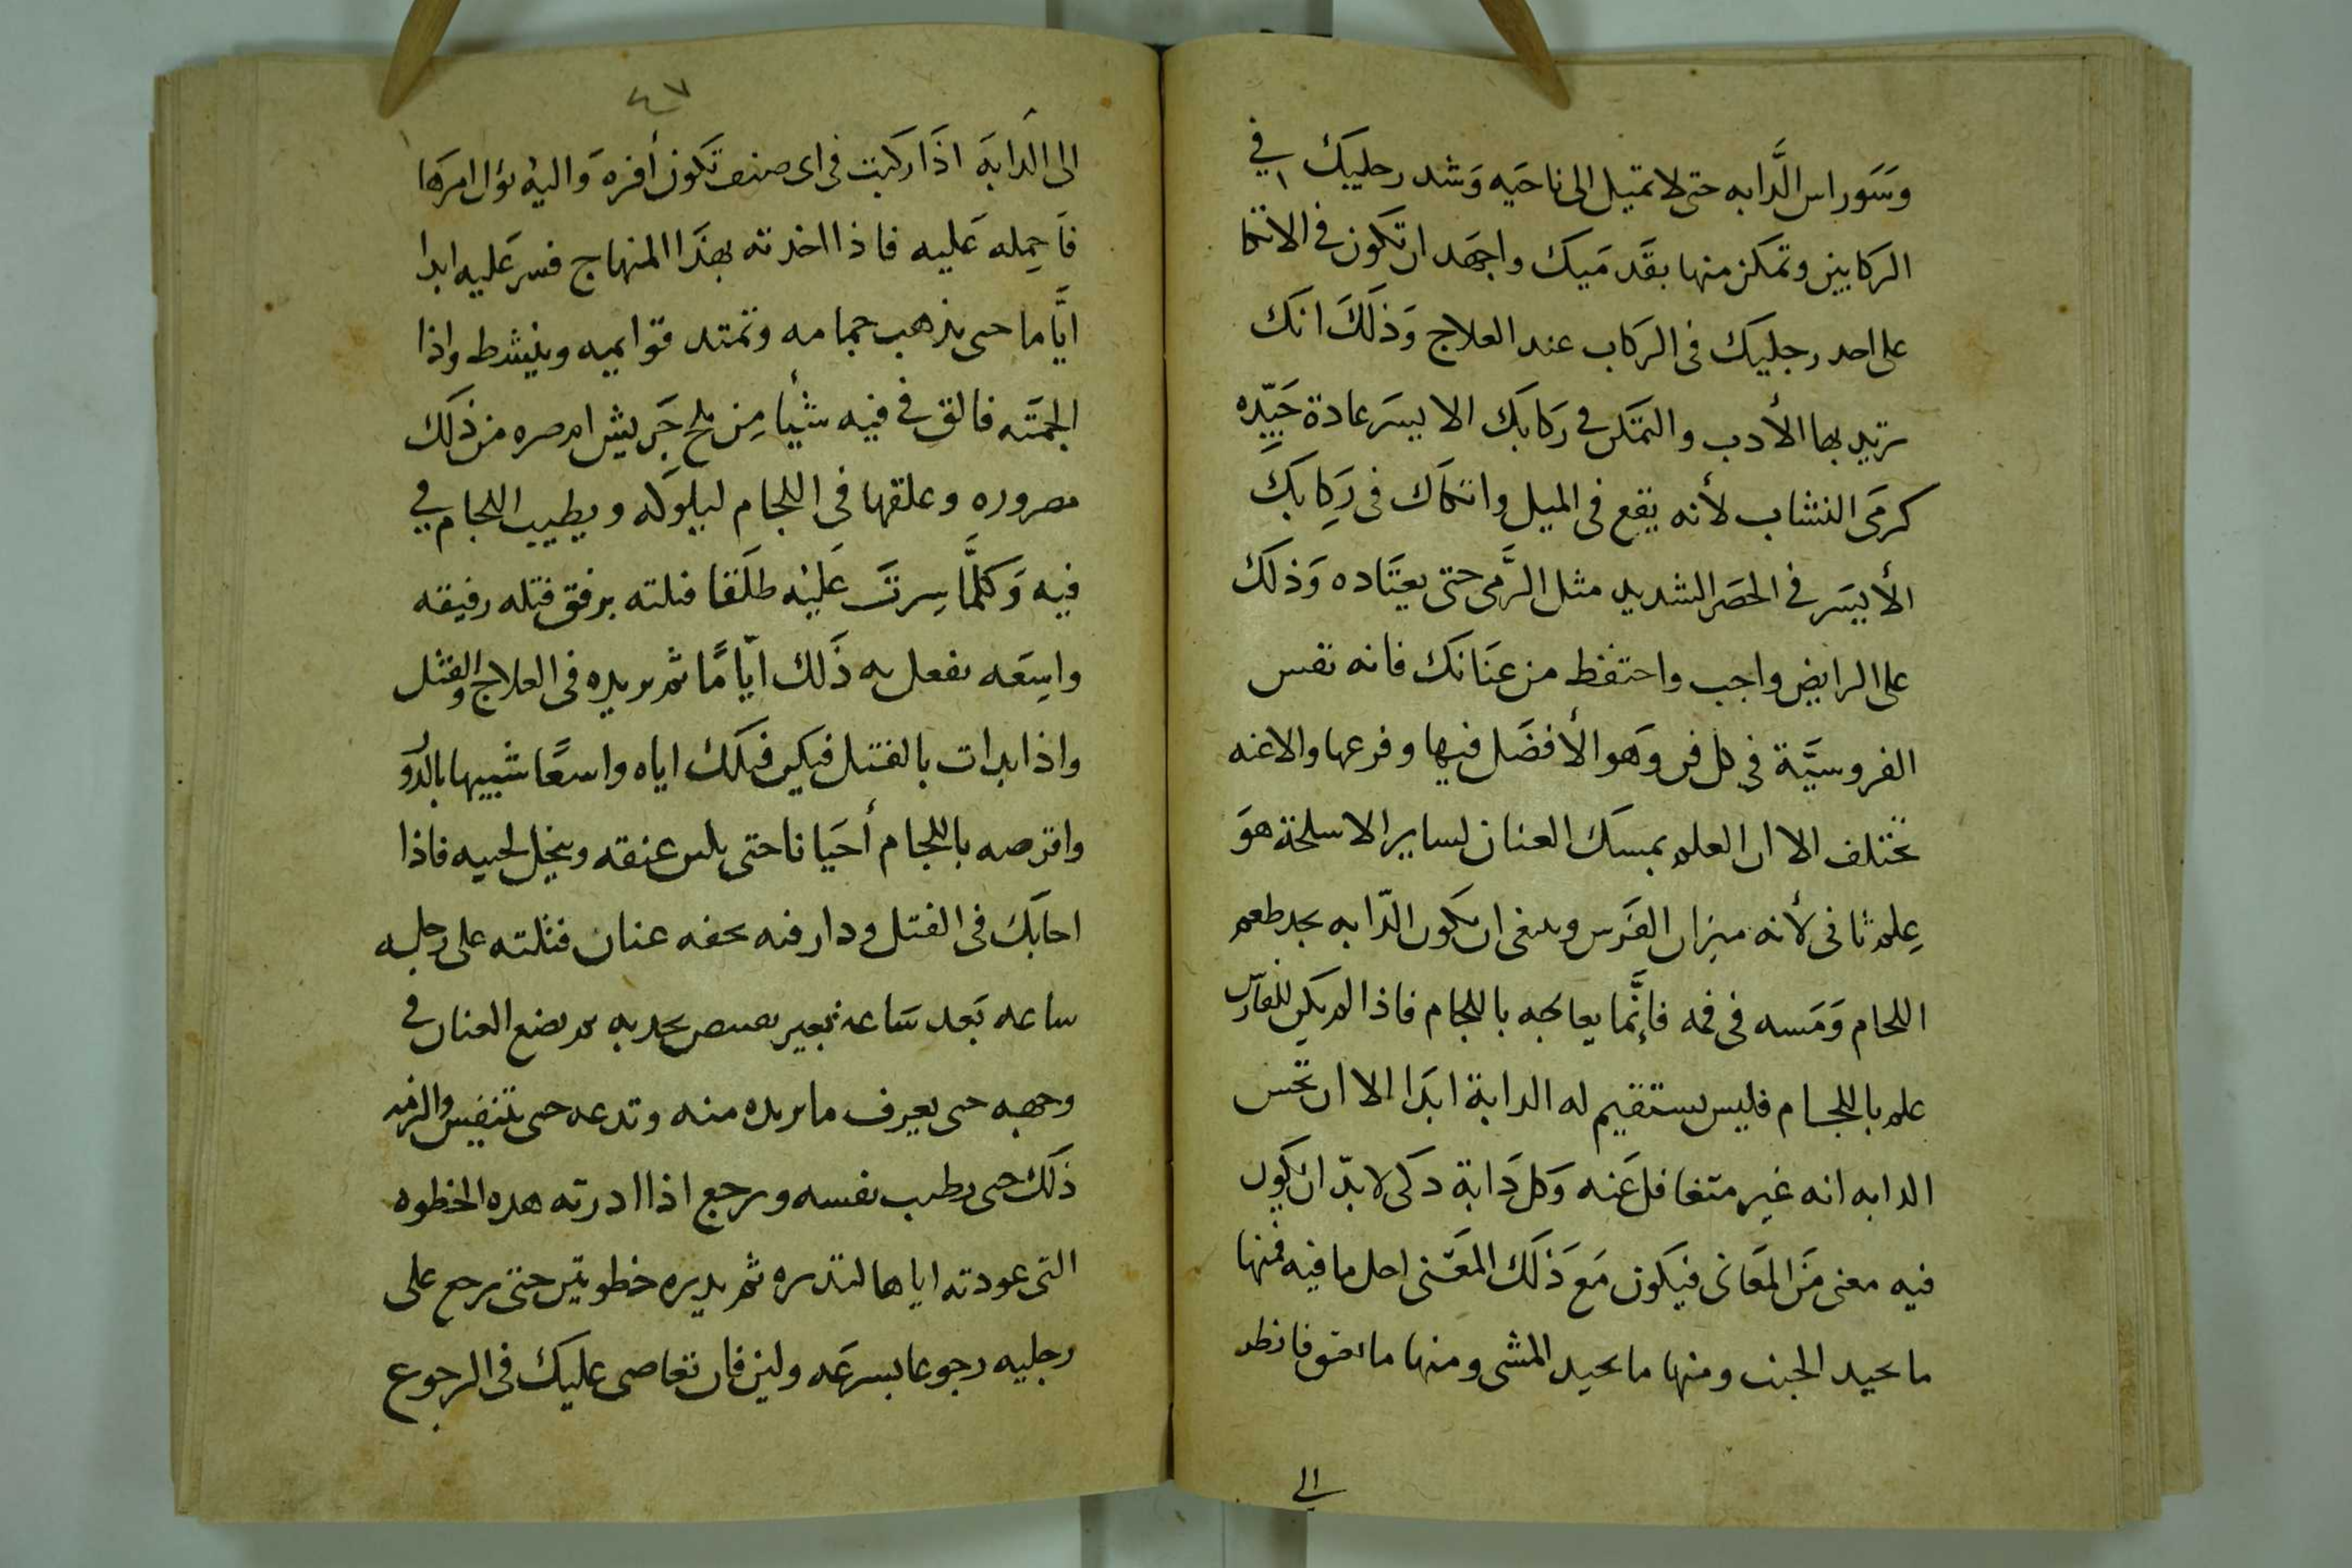 وَسَوراس الَّدابه حتى لا تميل الى ناحيَه وَشد رجليك فى
الركابين وتمكن منها بقَدمَيك واجهَد ان تكون فى الاتكا
على احد رجليك فى الركاب عند العلاج وَذلَكَ انك
تريد بها الأدب والتمَكن فى رَكابك الايسَر عادة جَيِّده
كرمَى النشاب لأنه يقع فى الميل واتكاك فى رَكِابكَ
الأيسَر فى الحصَر الشديد مثل الرَّمى حتى يعتَاده وَذلك
على الرايض واجب واحتفظ من عنَانك فانه نفس
الفروسيَّة فى كل فن وَهو الأفضَل فيها وفرعها والاعنه
تختلف الا ان العلم بمسك العنان لساير الاسلحة هوَ
عِلم ثانى لأنه ميزان الفرَس وينبغى ان تكون الدّابه يجد طعم
اللجام وَمَسه فى فمه فإنَّما يعالجه باللجام فاذا لم يكن للفارس
علم باللجام فليس يستقيم له الدابة ابَدا الا ان تحس
الدابه انه غير متغافل عَنه وَكل دَابة دكى لا بدّ ان يكون
فيه معنى مَن المعَانى فيكون مَع ذَلَك المعَنى احل ما فيه فمنها
ما يجيد الجنب ومنها ما يجيد المشى ومنها ما فانظر
الى
٤٧
الى الدابهَ اذَا ركبت فى اى صنف تكون أفره وَاليه يؤل امرها
فاَحمِله عَليه فاذا اخدته بهذَا المنهاج فسر عَليه ابدا
ايَّاما حتى يذهب جمامه وتمتد قوايمه وينشط واذا
الجمتَه فالق فى فيه شيأ مِن ملح جَريش او صره من ذلك
مصروره وعلقها فى اللجام ليلوَكه ويطيب اللجام فى
فيه وَكلَّما سِرتَ عَليْه طلَقا فتلته برفق فتله رفيقه
واسِعَه تفعل به ذَلك ايّامًا ثم تريده فى العلاج والفتل
واذا بدات بالفتل فيكن فتلك اياه واسعًا شبيها بالدَّو
واقرصه باللجام أحيَانا حتى يلين عنقه وينحل لحييه فاذا
اجابَكَ فى الفتل ودار فيه بخفه عنان فتلته على رجليه
ساعه بَعد سَاعة بغير تجدبه ثم تضع العنان فى
وجهه حتى يعرف ما تريده منه وتدعه حتى يتنفس والزمه
ذَلك حتى يطيب نفسه ويرجع اذا ادرته هده الخطوه
التى عودته اياها لتديره ثم يديره خطوتين حتى يرجع على
رجليه رجوعا بسرعَه ولين فان تعاصى عليك فى الرجوع